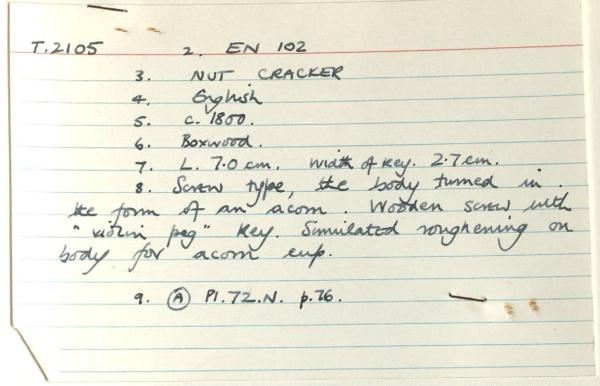 T.2105 2. EN 102
3. NUT CRACKER
4. English
5. c. 1800.
6. Boxwood.
7. L. 7.0 cm. Width of key. 2.7 cm.
8. Screw type, the body turned in
the form of an acorn. Wooden screw with
"violin peg" key. Simulated roughening on
body for acorn cup.
9. Ⓐ Pl.72.N. p.76.